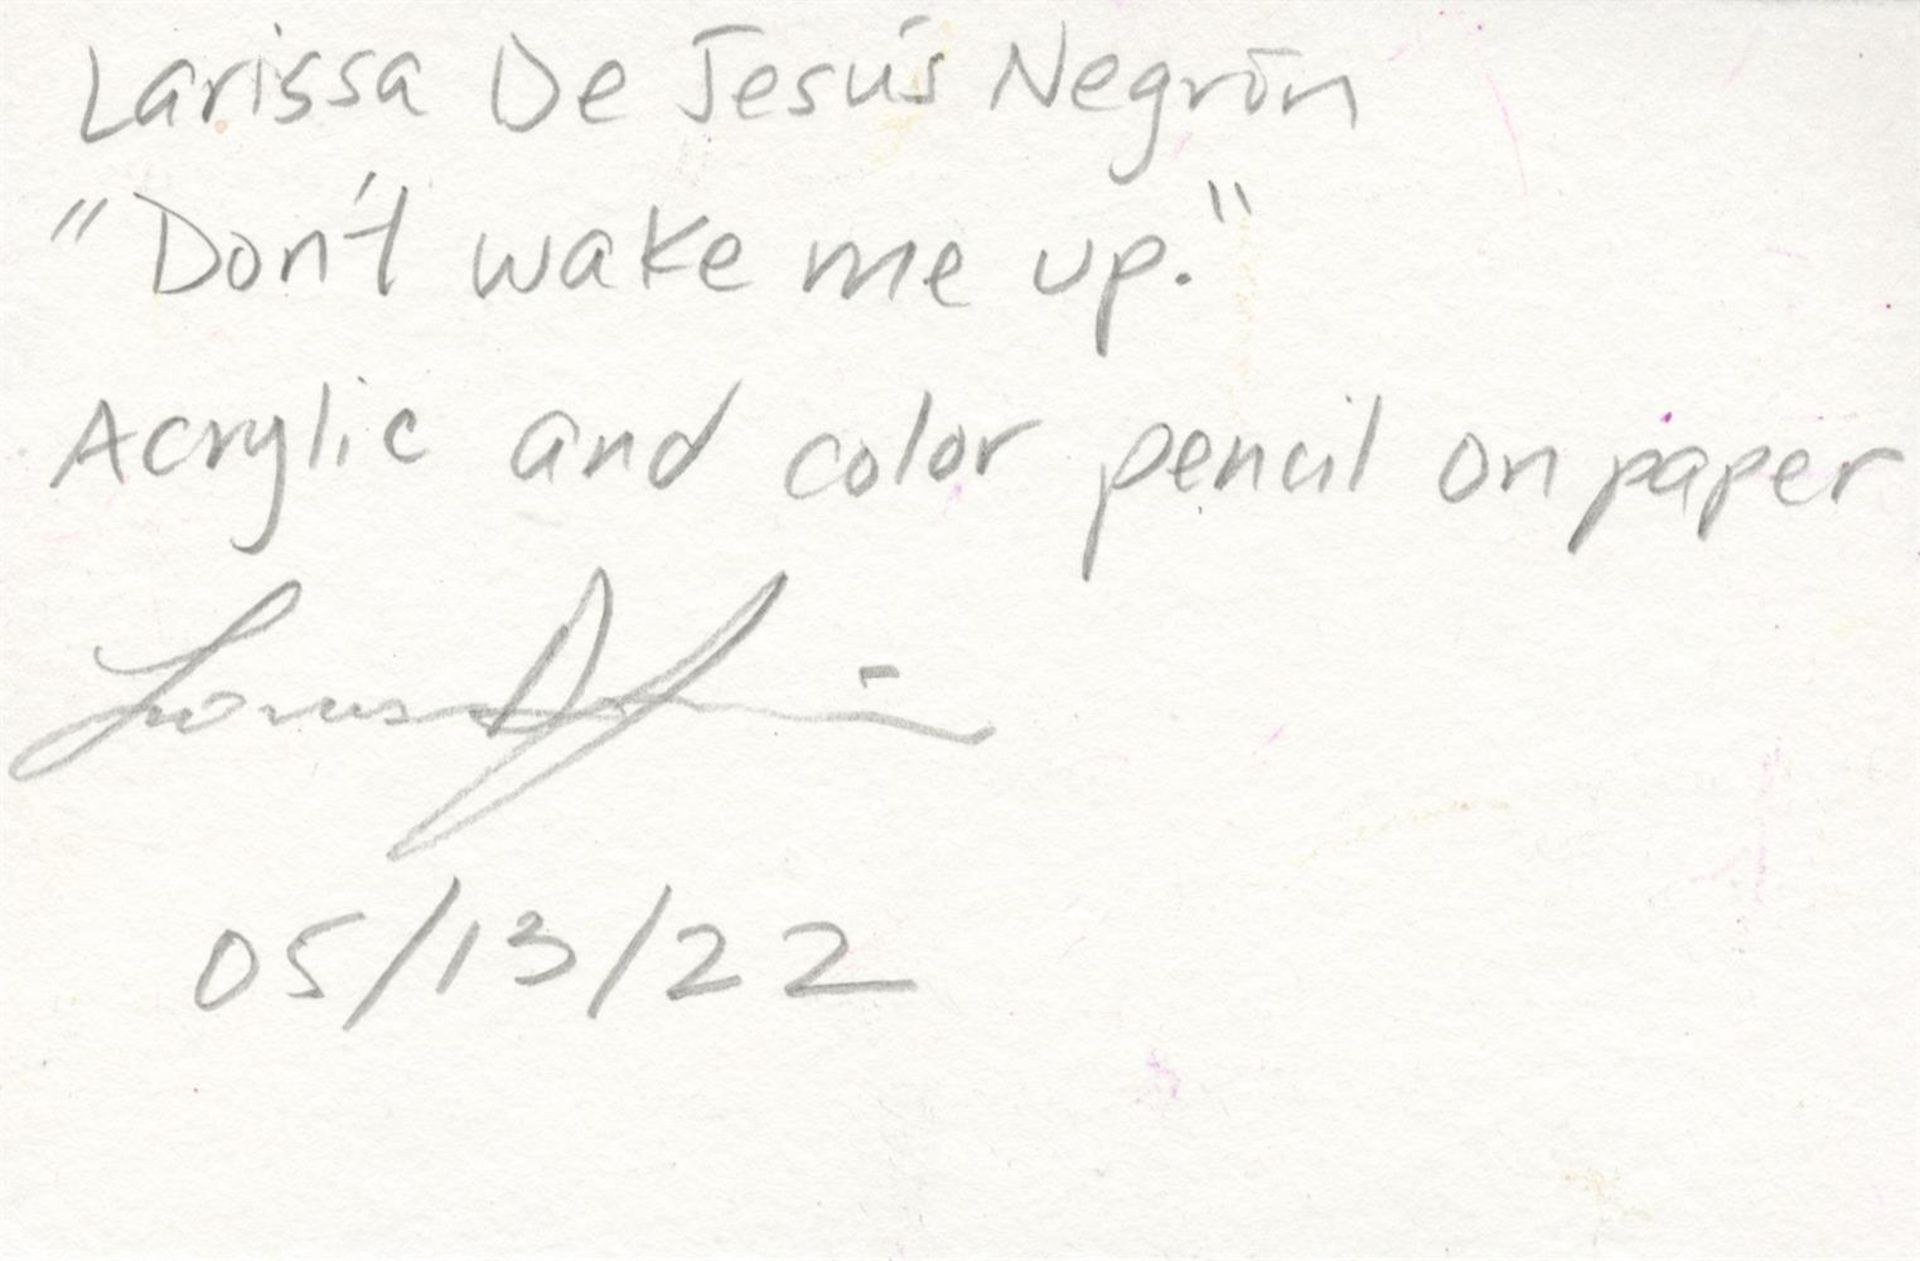 Larissa De Jesús Negrón
"Don't wake me up."
Acrylic and color pencil on paper
05/13/22